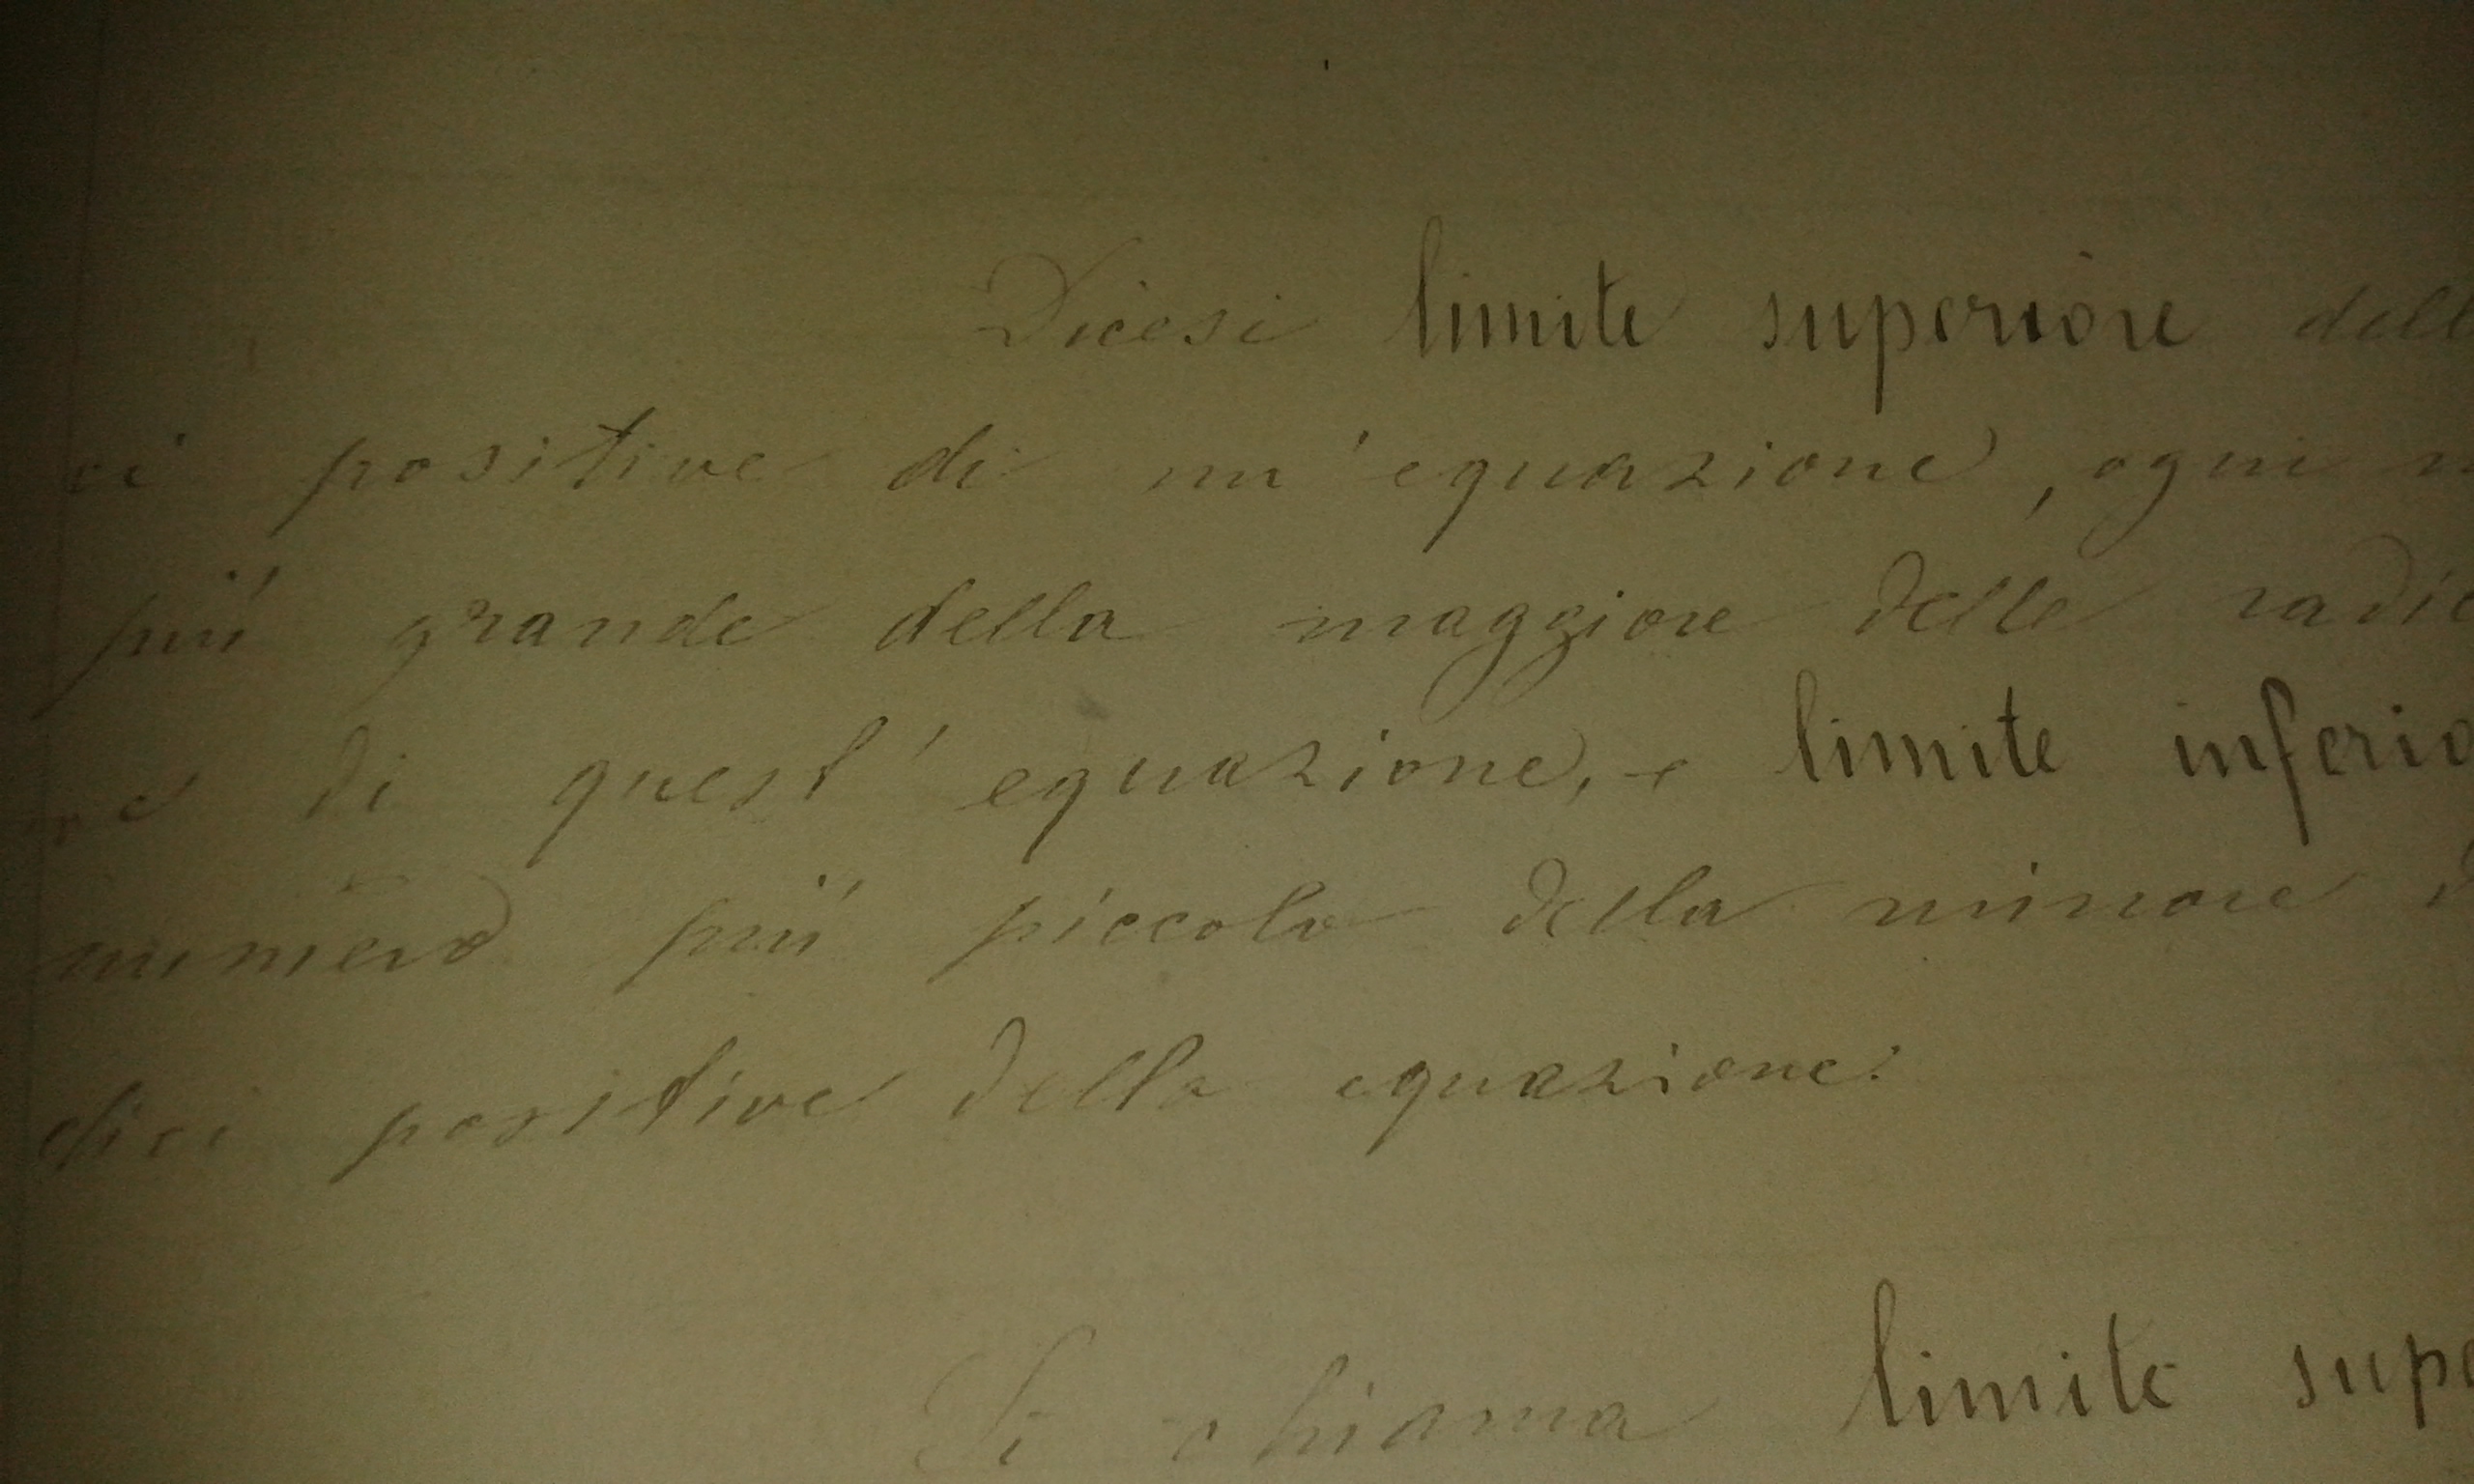 Dicesi limite superiore dell
ci positive di un' equazione, ogni n
più grande della maggiore delle radic
di quest' equazione, e limite inferio
numero più piccolo della minore d
dici positive della equazione.
Si chiama limite supe